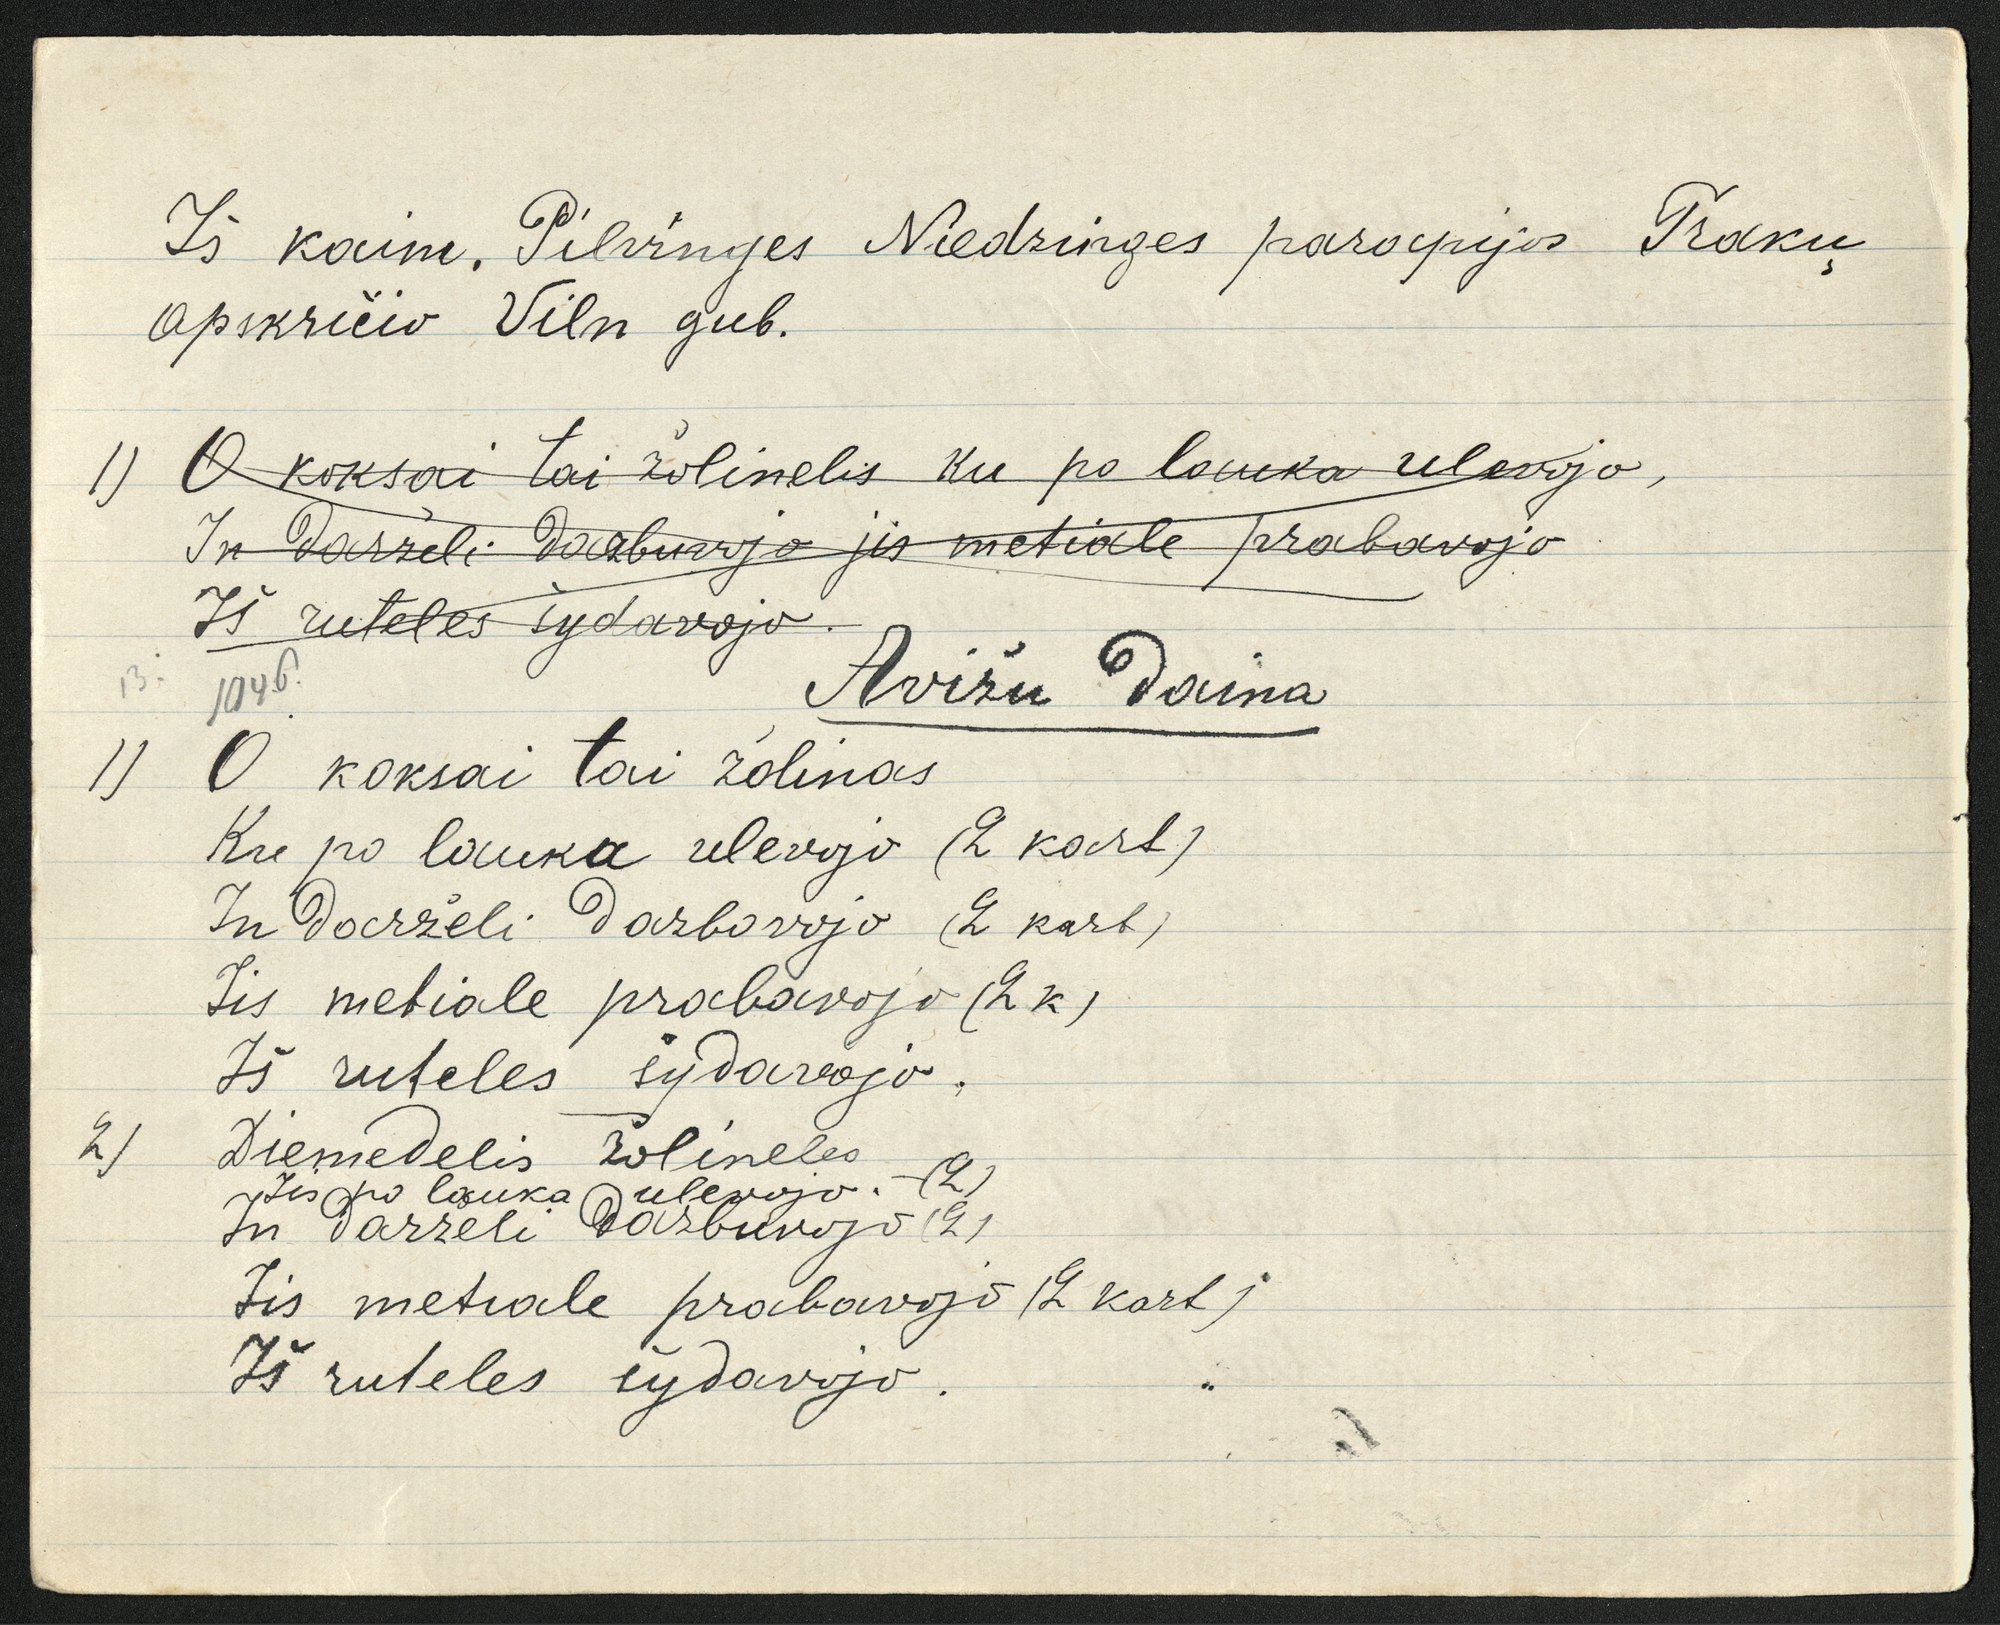 Iš kaim. Pilvinges Niedzinges parapijos Trakų
apskričio Viln gub.
1) O koksai tai žolinelis ku po lauka ulavojo,
In darželi darbuvojo jis metiale prabavojo
Iš ruteles šydavojo.
Avižu Daina
13.
1046.
1) O koksai tai žolinas
Ku po lauka ulevojo (2 kart)
In darželi darbavojo (2 kart)
Jis metiale prabavojo (2 k)
Iš ruteles šydavojo.
2) Diemedelis žolineles
Jis po lauka ulevojo. - (2)
In darželi darbuvojo (2)
Jis metiale prabavojo (2 kart)
Iš ruteles šydavojo.